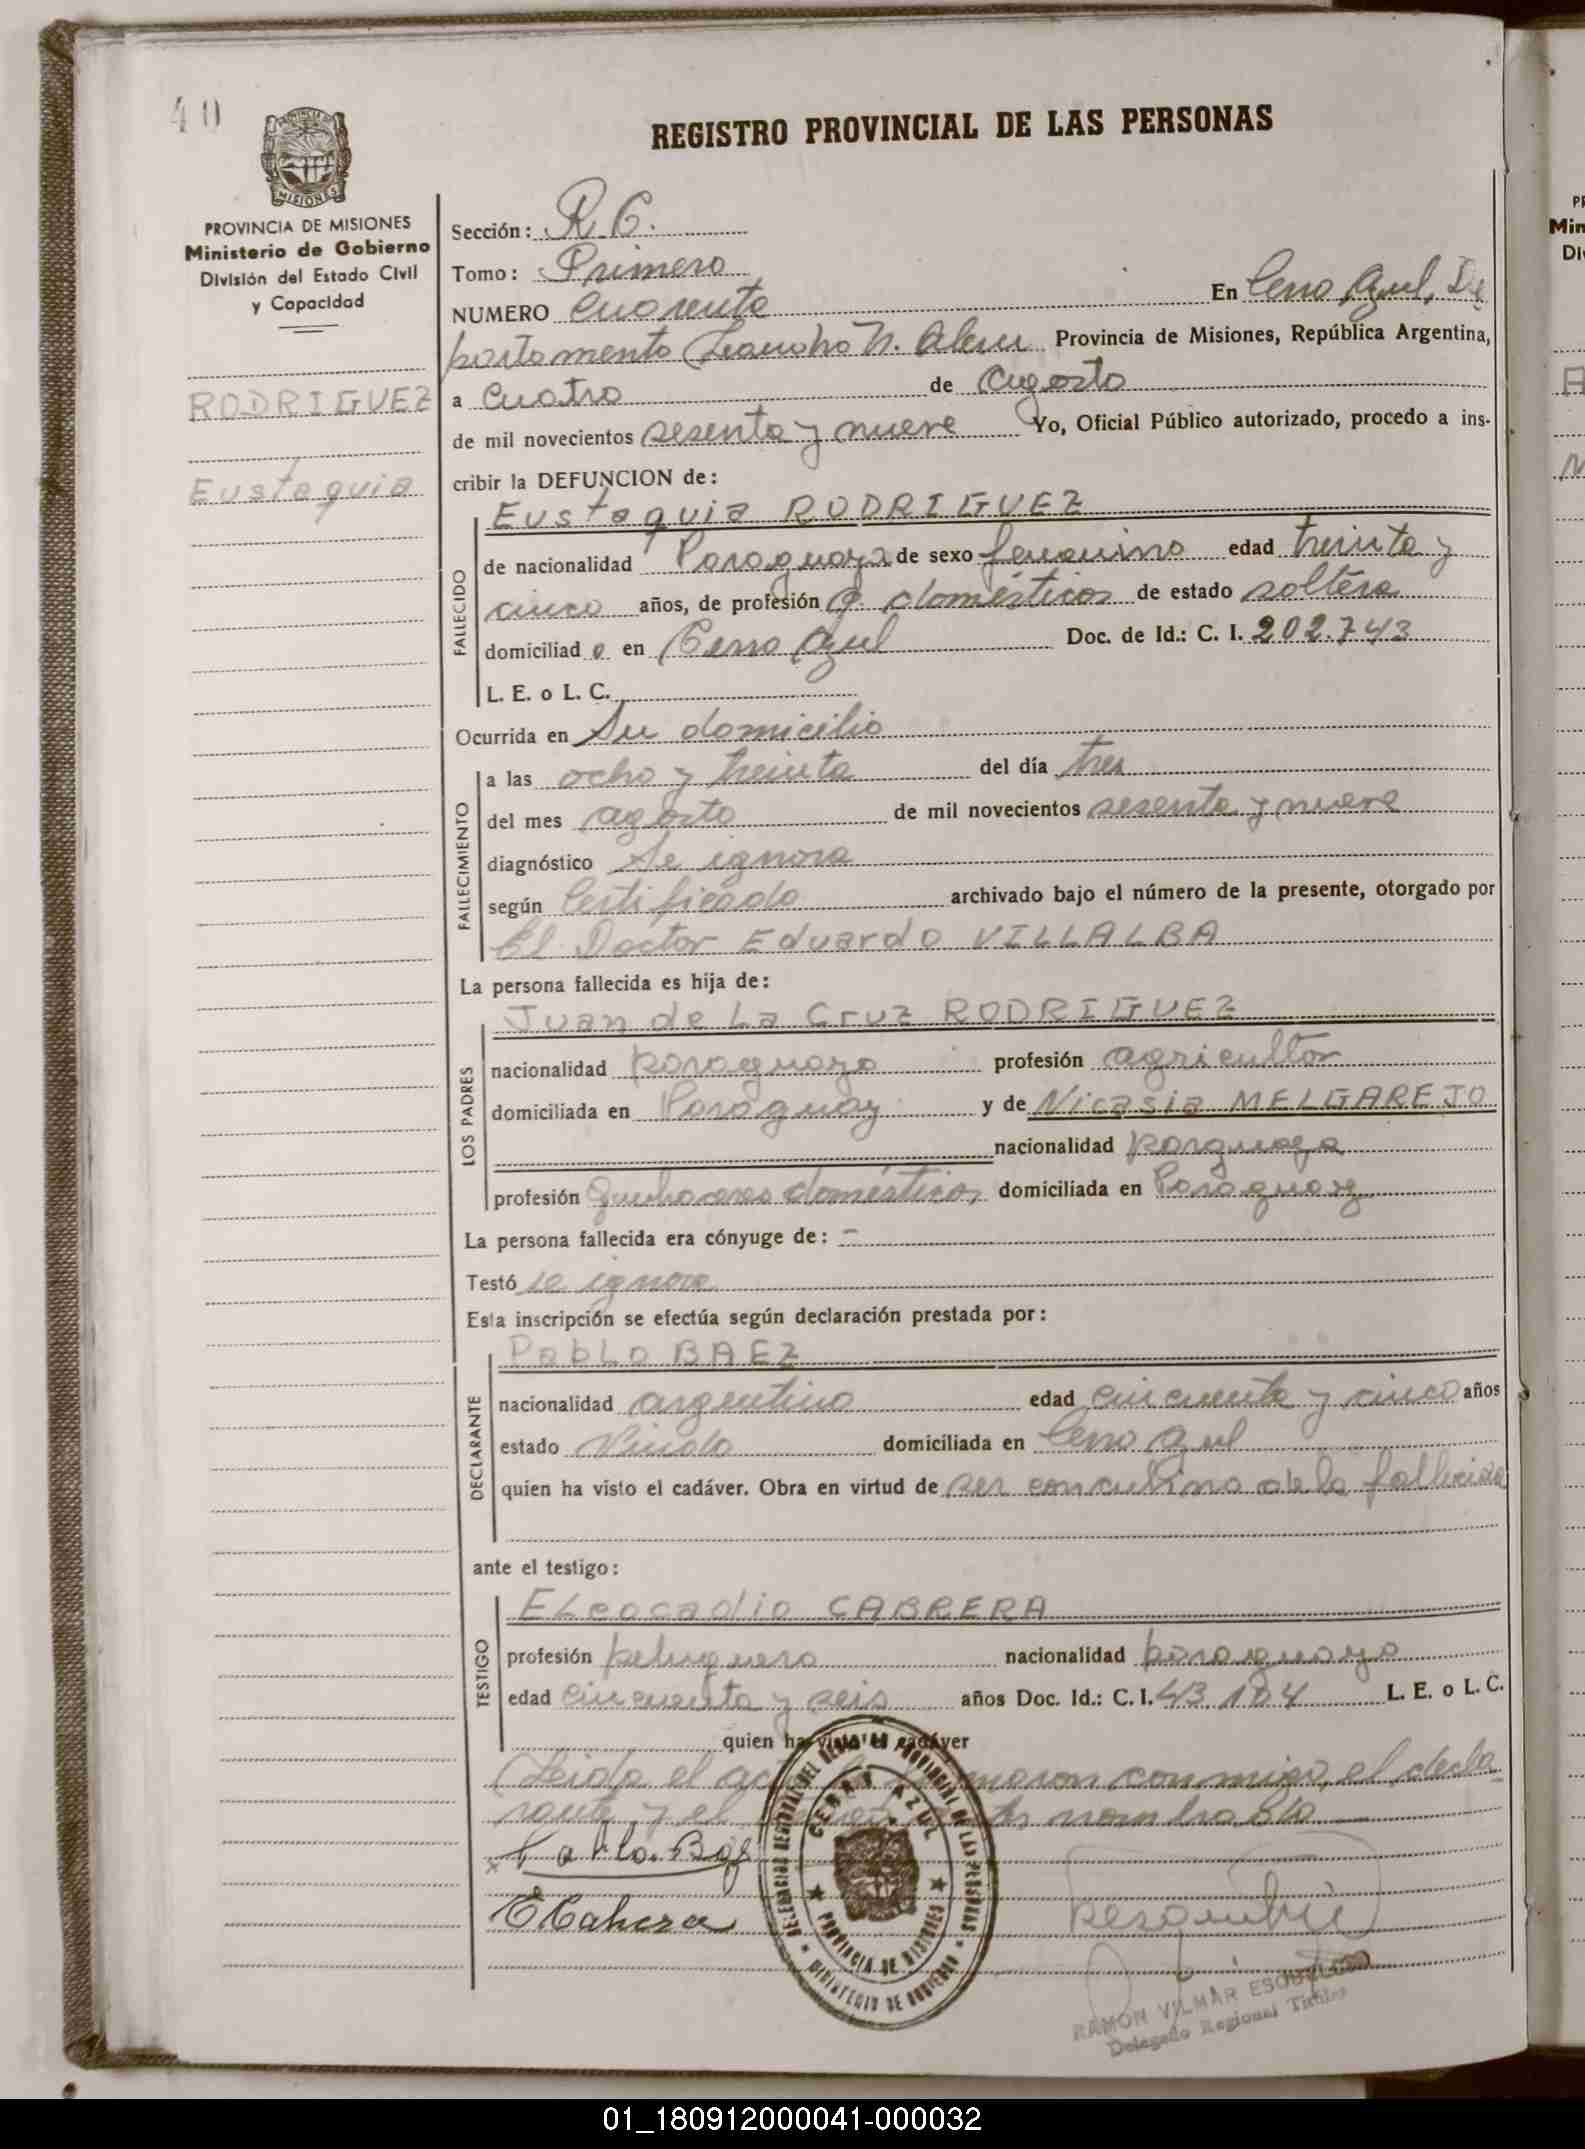 40
REGISTRO PROVINCIAL DE LAS PERSONAS
PROVINCIA DE MISIONES
MISIONES
PROVINCIA DE MISIONES
Ministerio de Gobierno
División del Estado Civil
y Capacidad
RODRIGUEZ
Eustaquia
Sección: R. C.
Tomo: Primero
NUMERO Cuarenta En Cerro Azul, De
partamento Leandro N. Alem Provincia de Misiones, República Argentina,
a Cuatro de Agosto
de mil novecientos sesenta y nueve Yo, Oficial Público autorizado, procedo a ins-
cribir la DEFUNCION de:
FALLECIDO
Eustaquia RODRIGUEZ
de nacionalidad Paraguaya de sexo femenino edad treinta y
cinco años, de profesión q. domésticos de estado soltera
domiciliada en Cerro Azul Doc. de Id.: C. I. 202.743
L. E. o L. C.
Ocurrida en Su domicilio
FALLECIMIENTO
a las ocho y treinta del día tres
del mes agosto de mil novecientos sesenta y nueve
diagnóstico Se ignora
según Certificado archivado bajo el número de la presente, otorgado por
El Doctor Eduardo VILLALBA
La persona fallecida es hija de:
LOS PADRES
Juan de La Cruz RODRIGUEZ
nacionalidad paraguayo profesión agricultor
domiciliada en Paraguay y de Nicasia MELGAREJO
nacionalidad parguaya
profesión Quehaceres domésticos domiciliada en Paraguay
La persona fallecida era cónyuge de: -
Testó se ignora
Esta inscripción se efectúa según declaración prestada por:
DECLARANTE
Pablo BAEZ
nacionalidad argentino edad cincuenta y cinco años
estado Viudo domiciliada en Cerro Azul
quien ha visto el cadáver. Obra en virtud de ser concubino de la fallecida
ante el testigo:
TESTIGO
ELeocadio CABRERA
profesión peluquero nacionalidad paraguayo
edad cincuenta y seis años Doc. Id.: C. I. 43.184 L. E. o L. C.
quien ha visto el cadáver
Leida el acta la firmaron conmigo, el decla
rante y el testigo antes nombrado
x Pablo Baez
E Cabrera
DELEGACION REGIONAL DEL REGISTRO PROVINCIAL DE LAS PERSONAS
CERRO AZUL
PROVINCIA DE MISIONES
MINISTERIO DE GOBIERNO
RAMON VILMAR
Delegado Regional Titular
PR
Min
Di
01_180912000041-000032